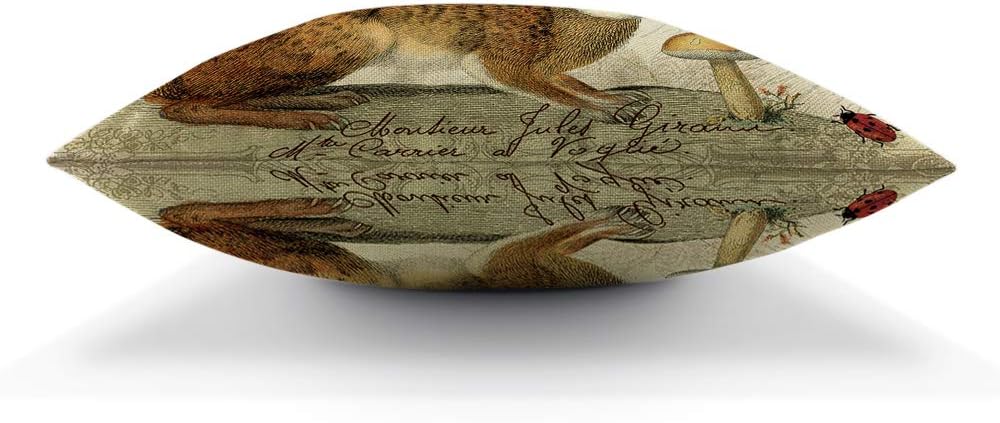 Monsieur Jules Giraud.
Mte Carrier a Vogué